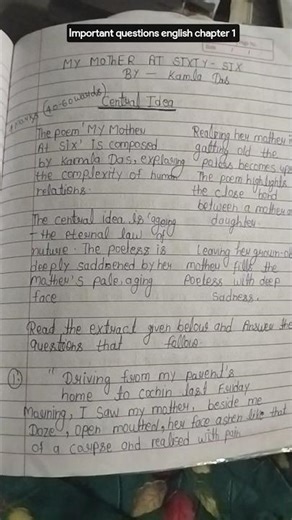 Important questions english chapter 1
MY MOTHER AT SIXTY-SIX
BY - Kamla Das
(40-60 words)
Central Idea
The poem 'MY Mother
At Six' is composed
by Kamala Das, exploring
the complexity of human
relations.
Realizing her mother is
gatting old the
poetess becomes
The poem highlights
the close bond
between a mother
daughter.
The central idea is 'ageing
- the eternal law of
nuture. The poetess is
deeply saddnened by her
Mother's pale, aging
face
Leaving her grown-
mother fills the
poetess with deep
sadness.
Read the extract given below and Answer the
questions that follow.
1. "Driving from my parent's
home to Cochin last Friday
Mouning, I saw my mother, beside me
Doze, open mouthed, her face ashen like that
of a corpse and realised with pain